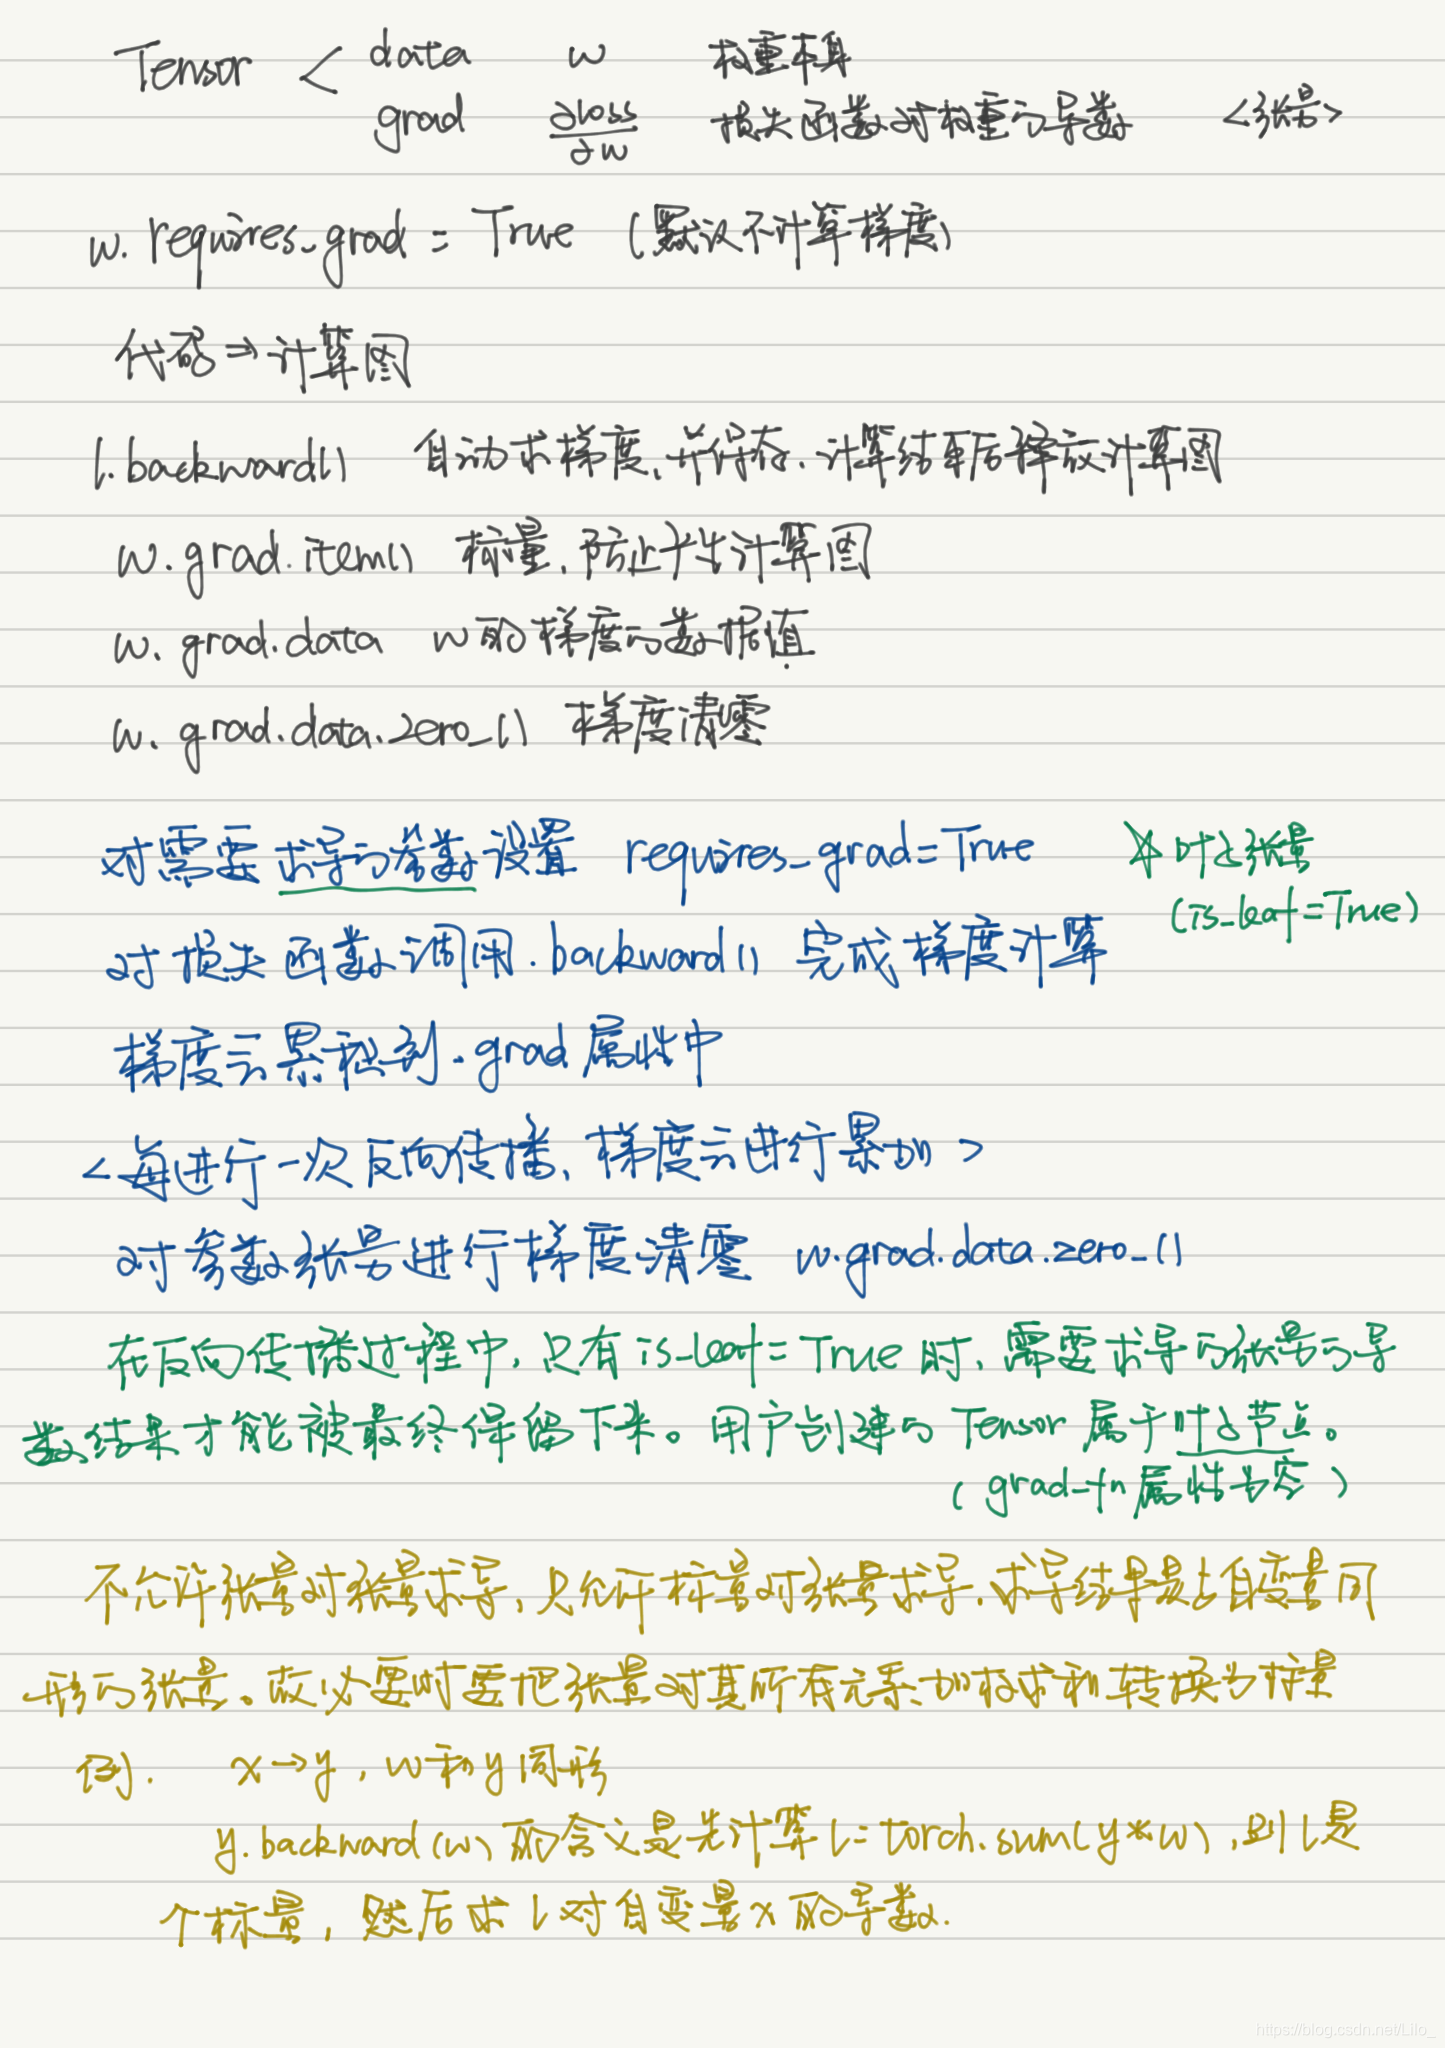 Tensor < data w 权重本身
grad ∂loss/∂w 损失函数对权重的导数 <张量>
w.requires_grad = True (默认不计算梯度)
代码⇒计算图
l.backward() 自动求梯度,并保存,计算结束后释放计算图
w.grad.item() 标量,防止产生计算图
w.grad.data w的梯度的数据值
w.grad.data.zero_() 梯度清零
对需要求导的参数设置 requires_grad=True ☆叶子张量
(is_leaf=True)
对损失函数调用.backward() 完成梯度计算
梯度会累积到.grad属性中
<每进行一次反向传播,梯度会进行累加>
对参数张量进行梯度清零 w.grad.data.zero_()
在反向传播过程中,只有is_leaf=True时,需要求导的张量的导
数结果才能被最终保留下来。用户创建的Tensor属于叶子节点。
(grad_fn属性为空)
不允许张量对张量求导,只允许标量对张量求导,求导结果是与自变量同
形的张量。故必要时要把张量对其所有元素加权求和转换为标量
例. x→y,w和y同形
y.backward(w)的含义是先计算l=torch.sum(y*w),则l是
个标量,然后求l对自变量x的导数.
https://blog.csdn.net/Lilo_